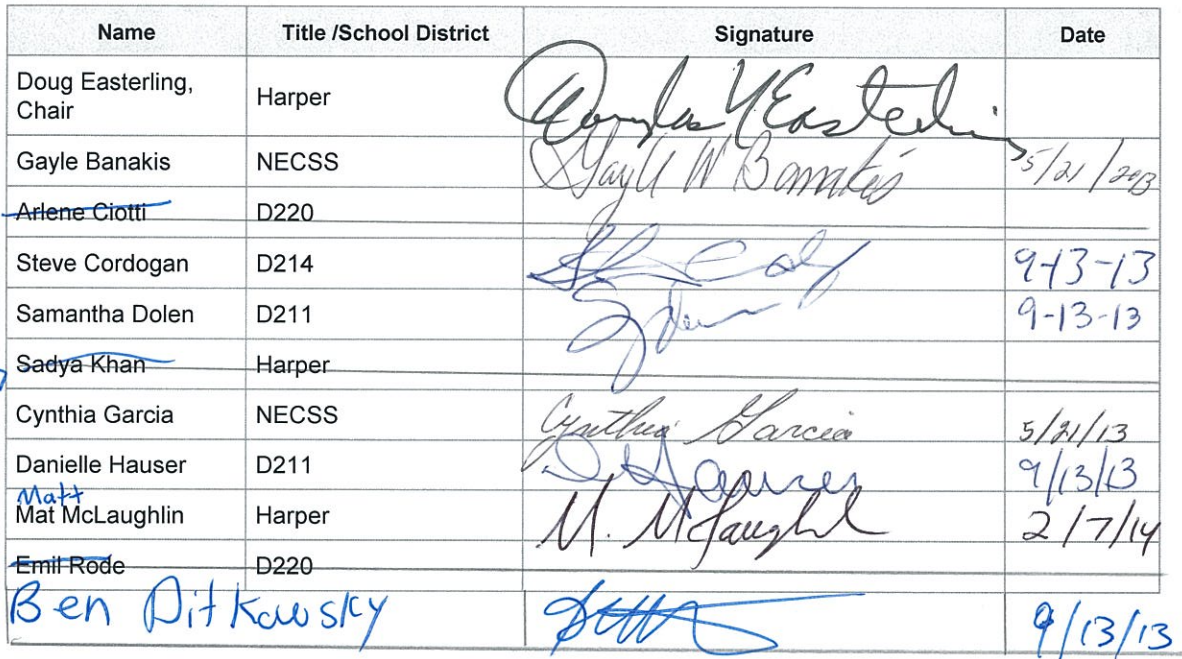 Name Title /School District Signature Date
Doug Easterling,
Chair Harper Douglas Y Easterling
Gayle Banakis NECSS Gayle W Banakis 5/21/2013
Arlene Ciotti D220
Steve Cordogan D214 9-13-13
Samantha Dolen D211 9-13-13
Sadya Khan Harper
Cynthia Garcia NECSS Cynthia Garcia 5/21/13
Danielle Hauser D211 D Hauser 9/13/13
Matt
Mat McLaughlin Harper M. McLaughl 2/7/14
Emil Rode D220
Ben Ditkowsky 9/13/13